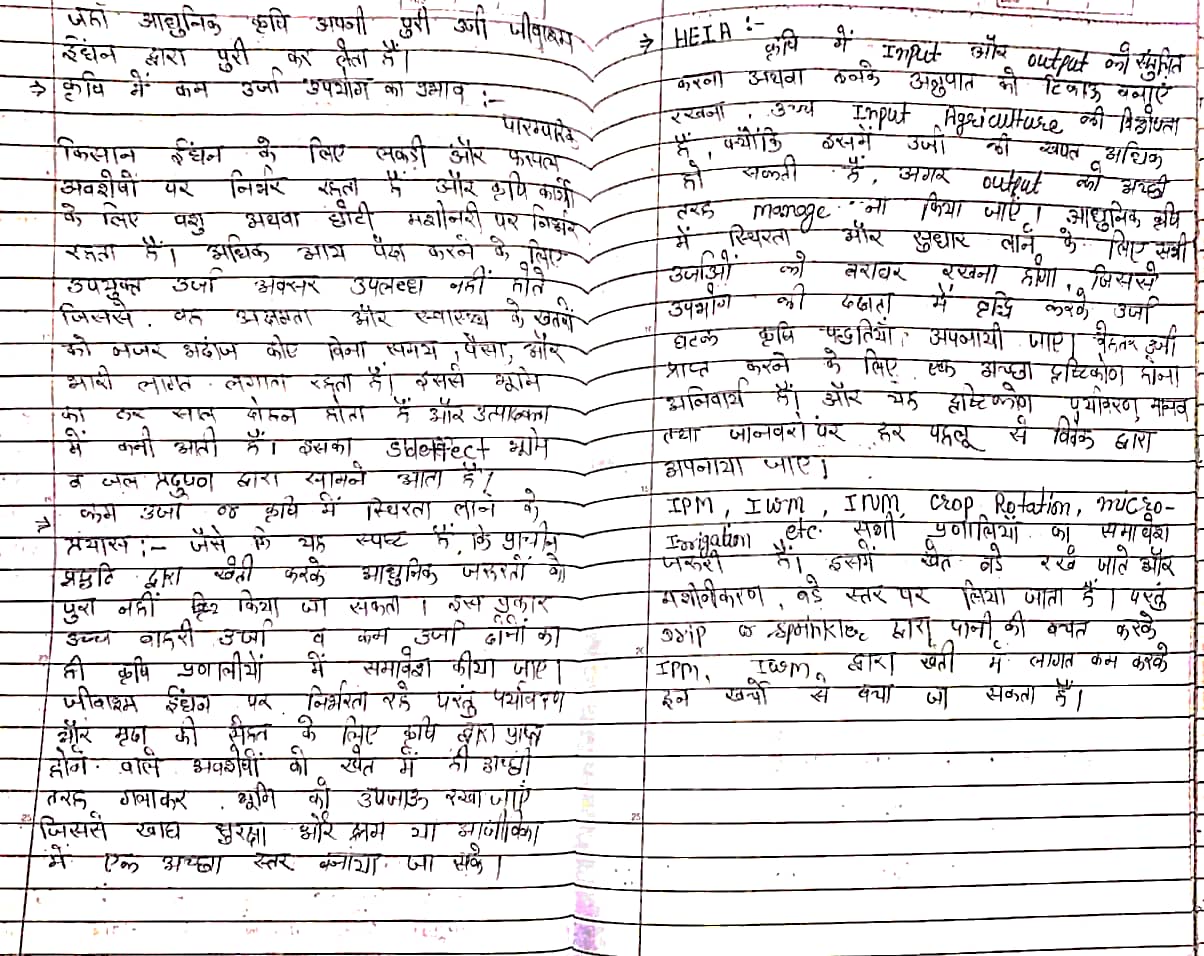 जहाँ आधुनिक कृषि अपनी पुरी उर्जा जीवाश्म
ईंधन द्वारा पुरी कर लेता है।
⇒ कृषि में कम उर्जा उपयोग का प्रभाव :-
पारम्परिक
किसान ईंधन के लिए लकड़ी और फसल
अवशेषों पर निर्भर रहता है और कृषि कार्यों
के लिए पशु अथवा छोटी मशीनरी पर निर्भर
रहता है। अधिक आय पैदा करने के लिए
उपयुक्त उर्जा अक्सर उपलब्ध नहीं होते
जिससे वह अक्षमता और स्वास्थ्य के खतरों
को नजर अदांज कीए बिना समय, पैसा, और
भारी लागत लगाता रहता है। इससे भूमि
का हर साल दोहन होता है और उत्पादकता
में कमी आती है। इसका sideffect भूमि
व जल प्रदुषण द्वारा सामने आता है।
⇒ कम उर्जा कृषि में स्थिरता लाने के
प्रयास :- जैसे कि यह स्पष्ट है, कि प्राचीन
पद्धति द्वारा खेती करके आधुनिक जरूरतों को
पुरा नहीं किया जा सकता। इस प्रकार
उच्च बाहरी उर्जा व कम उर्जा दोनों का
ही कृषि प्रणालीयों में समावेश कीया जाए।
जीवाश्म ईंधन पर निर्भरता रहे परंतु पर्यावरण
और मृदा की सेहत के लिए कृषि द्वारा प्राप्त
होने वाले अवशेषों को खेत में ही अच्छी
तरह गलाकर भूमि को उपजाऊ रखा जाएं
जिससे खाद्य सुरक्षा और श्रम या आजीविका
में एक अच्छा स्तर बनाया जा सके।
⇒ HEIA :-
कृषि में Input और output को संतुलित
करना अथवा उनके अनुपात को टिकाऊ बनाएं
रखना, उच्च Input Agriculture की विशेषता
है, क्योंकि इसमें उर्जा की खपत अधिक
हो सकती है, अगर output को अच्छी
तरह manage ना किया जाएं। आधुनिक कृषि
में स्थिरता और सुधार लाने के लिए सभी
उर्जाओं को बराबर रखना होगा, जिससे
उपभोग की दक्षता में वृद्धि करके उर्जा
घटक कृषि पद्धतियाँ अपनायी जाए। बेहतर उर्जा
प्राप्त करने के लिए एक अच्छा दृष्टिकोण होना
अनिवार्य है। और यह दृष्टिकोण पर्यावरण, मानव
तथा जानवरों पर हर पहलू से विवेक द्वारा
अपनाया जाए।
IPM, IWM, INM, Crop Rotation, micro-
Irrigation etc. सभी प्रणालियों का समावेश
जरूरी है। इसमें खेत बड़े रखे जाते और
मशीनीकरण, बड़े स्तर पर लिया जाता है। परंतु
drip or sprinkler द्वारा पानी की बचत करके
IPM, IWM, द्वारा खेती में लागत कम करके
इन खर्चों से बचा जा सकता है।